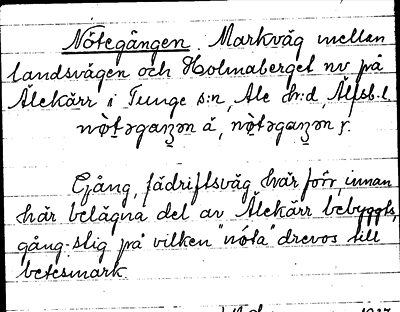 Nötegången. Markväg mellan
landsvägen och Holmaberget nv på
Älekärr i Tunge s:n, Ale hr:d, Älfsb.l.
nø̀təgaŋən ä, nø̀təgaŋən y.
Gång, fädriftsväg, här förr, innan
här belägna del av Älekärr bebyggts,
gång-stig på vilken "nöta" drevos till
betesmark.